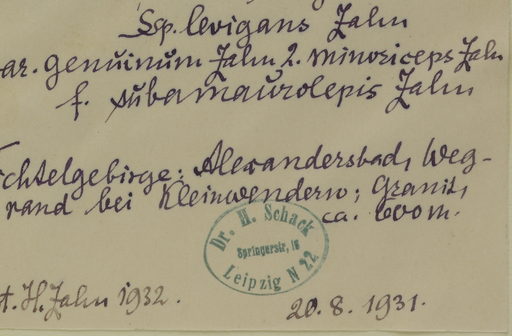 Ssp. levigans Zahn
ar. genuinum Zahn 2. minoriceps Zahn
f. subamaurolepis Zahn
ichtelgebirge: Alexandersbad, Weg-
rand bei Kleinwendern; Granit,
ca. 600 m.
Dr. H. Schack
Springerstr. 16
Leipzig N 22
t. H. Zahn 1932.
20. 8. 1931.